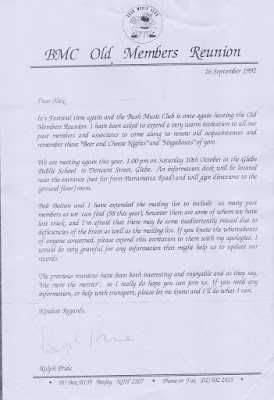 BUSH MUSIC CLUB
BMC Old Members Reunion
26 September 1992
Dear Alex,
It's Festival time again and the Bush Music Club is once again hosting the Old
Members Reunion. I have been asked to extend a very warm invitation to all our
past members and associates to come along to renew old acquaintances and
remember those "Beer and Cheese Nights" and "Singabouts" of yore.
We are meeting again this year, 1.00 pm on Saturday 10th October at the Glebe
Public School in Derwent Street, Glebe. An information desk will be located
near the entrance (not far from Parramatta Road) and will give directions to the
(ground floor) room.
Bob Bolton and I have extended the mailing list to include as many past
members as we can find (58 this year), however there are some of whom we have
lost track, and I'm afraid that there may be some inadvertently missed due to
deficiencies of the brain as well as the mailing list. If you know the whereabouts
of anyone concerned, please extend this invitation to them with my apologies. I
would be very grateful for any information that might help us to update our
records.
The previous reunions have been both interesting and enjoyable and as they say,
"the more the merrier", so I really do hope you can join us. If you need any
information, or help with transport, please let me know and I'll do what I can.
Kindest Regards,
Ralph Pride
Ralph Pride
• PO Box Bexley NSW 2207 • Phone or Fax (02) 502 2425 •